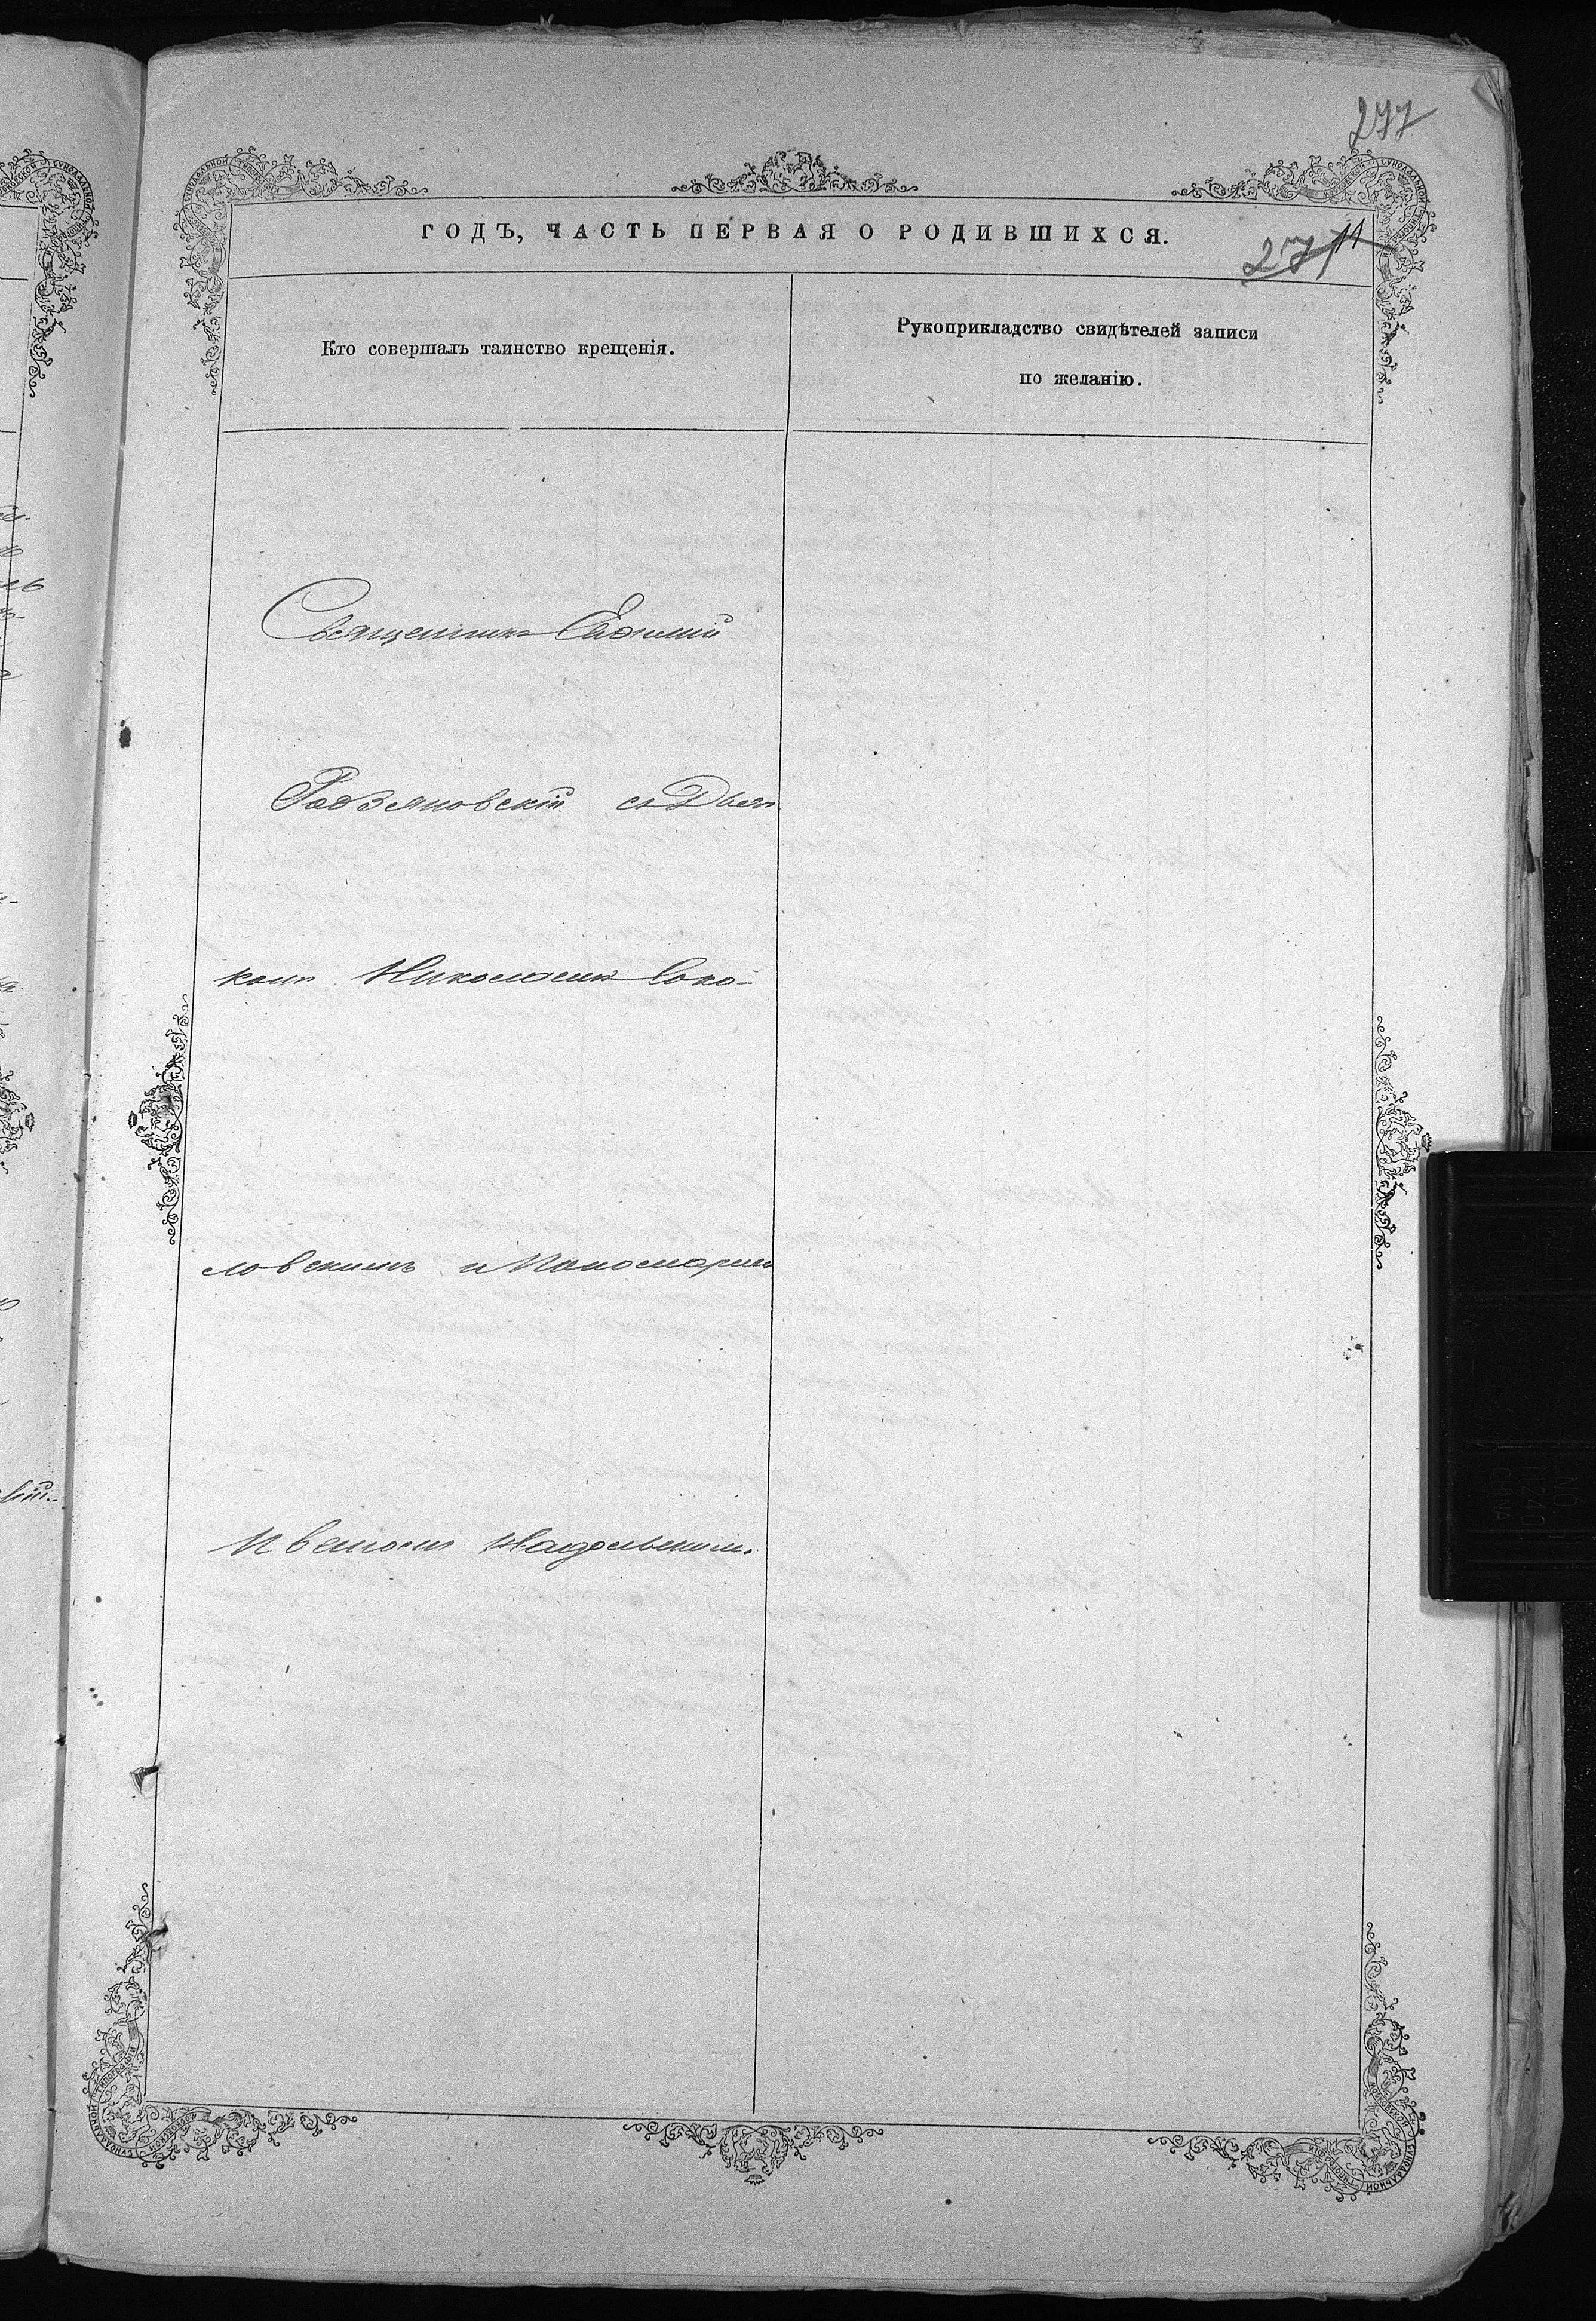 277
ГОДЪ, ЧАСТЬ ПЕРВАЯ О РОДИВШИХСЯ.
27 11
Кто совершалъ таинство крещенія.
Рукоприкладство свидѣтелей записи
по желанію.
Священникъ Евфимій
Радзяновскій съ Діа
кономъ Николаемъ Соко-
ловскимъ и Пономаремъ
Иваномъ Надольскимъ.